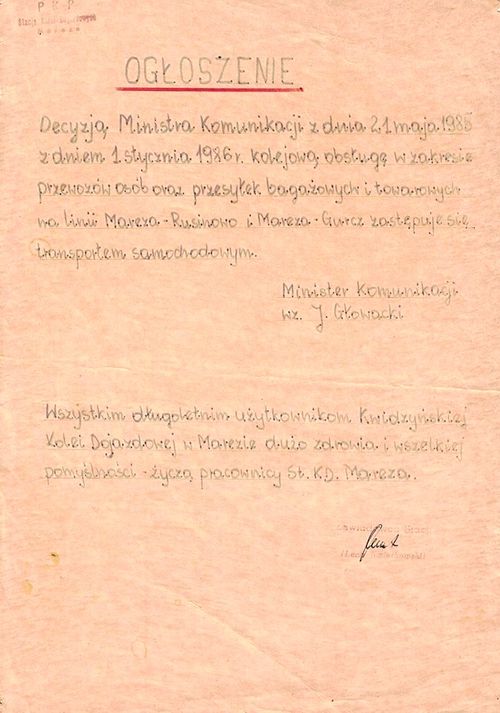 PKP
Stacja
Mareza
OGŁOSZENIE
Decyzją Ministra Komunikacji z dnia 21 maja 1985
z dniem 1 stycznia 1986 r. kolejową obsługę w zakresie
przewozów osób oraz przesyłek bagażowych i towarowych
na linii Mareza - Rusinowo i Mareza - Gurcz zastępuje się
transportem samochodowym.
Minister Komunikacji
wz. J. Głowacki
Wszystkim długoletnim użytkownikom Kwidzyńskiej
Kolei Dojazdowej w Marezie dużo zdrowia i wszelkiej
pomyślności - życzą pracownicy St. KD. Mareza.
Zawiadowca Stacji